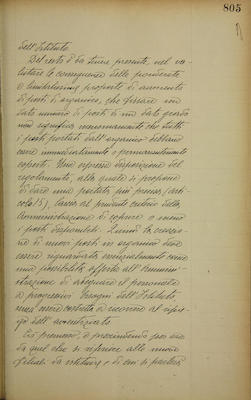 805
dell'Istituto.
Del resto è da tener presente, nel va-
lutare le conseguenze delle ponderate
e proposte di aumento
di posti di organico, che fissare un
dato numero di posti in un dato grado
non significa necessariamente che tutti
i posti portati dall'organico debbano
essere immediatamente o permanentemente
coperti. Una espressa disposizione del
regolamento, alla quale si propone
di dare una portata più precisa (arti-
colo 15), lascia al prudente criterio della
Amministrazione di coprire o meno
i posti disponibili. Quindi la creazio-
ne di nuovi posti in organico deve
essere riguardata essenzialmente come
una possibilità offerta all'Ammini-
strazione di adeguare il personale
ai progressivi bisogni dell'Istituto,
senza essere costretta a ricorrere al ripie-
go dell'avventiziato.
Ciò premesso, e prescindendo per ora
da quel che si riferisce alle nuove
filiali da istituire, e di cui si parlerà